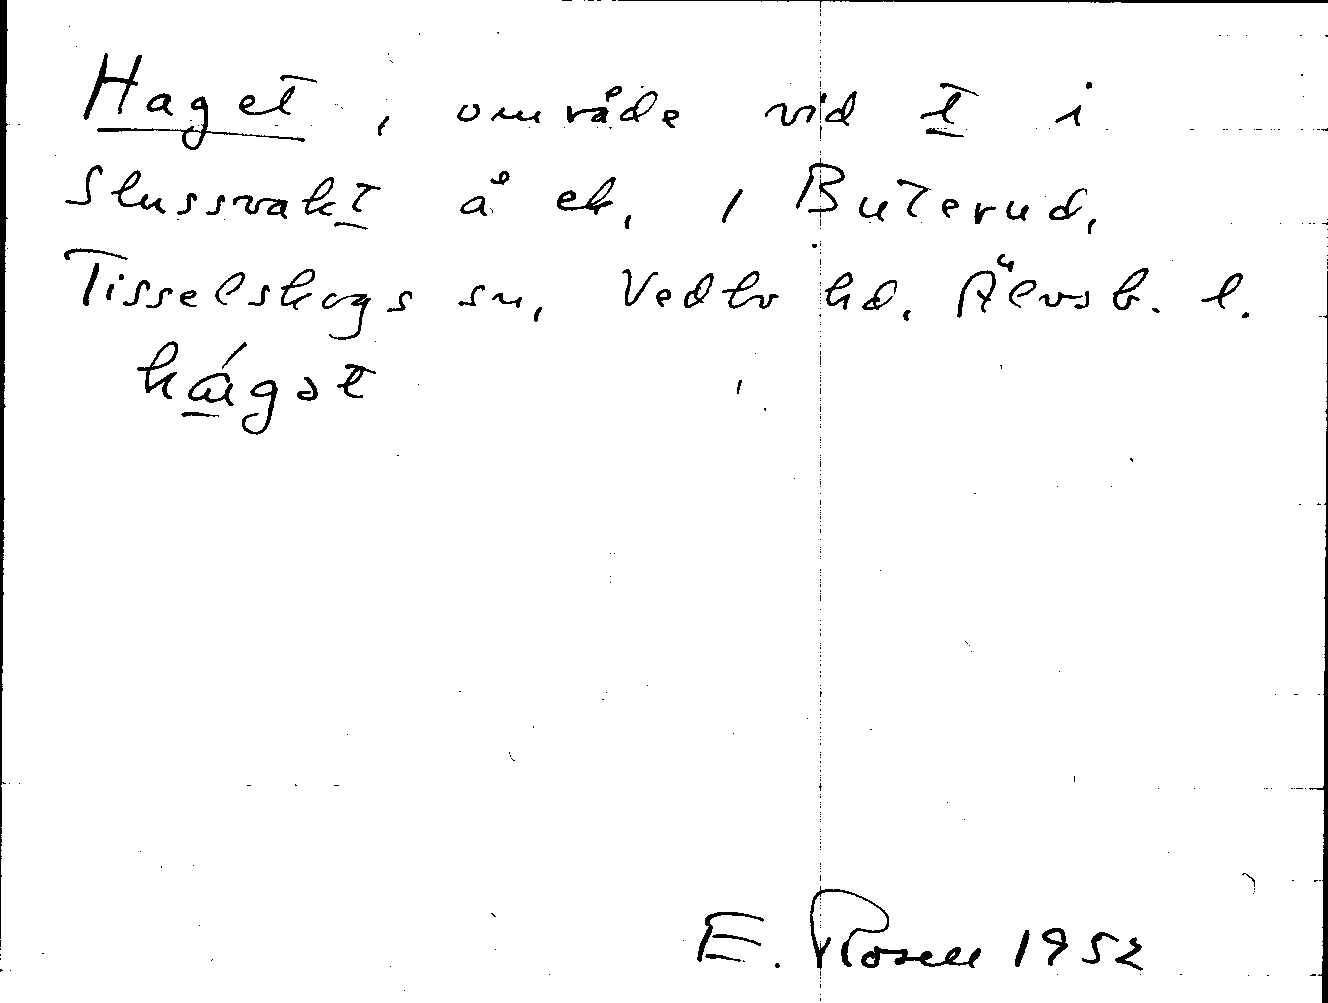 Haget, område vid t i
Slussvakt å ek, 1 Buterud,
Tisselskogs sn, Vedbo hd, Älvsb. l.
hágət
E. Rosell 1952